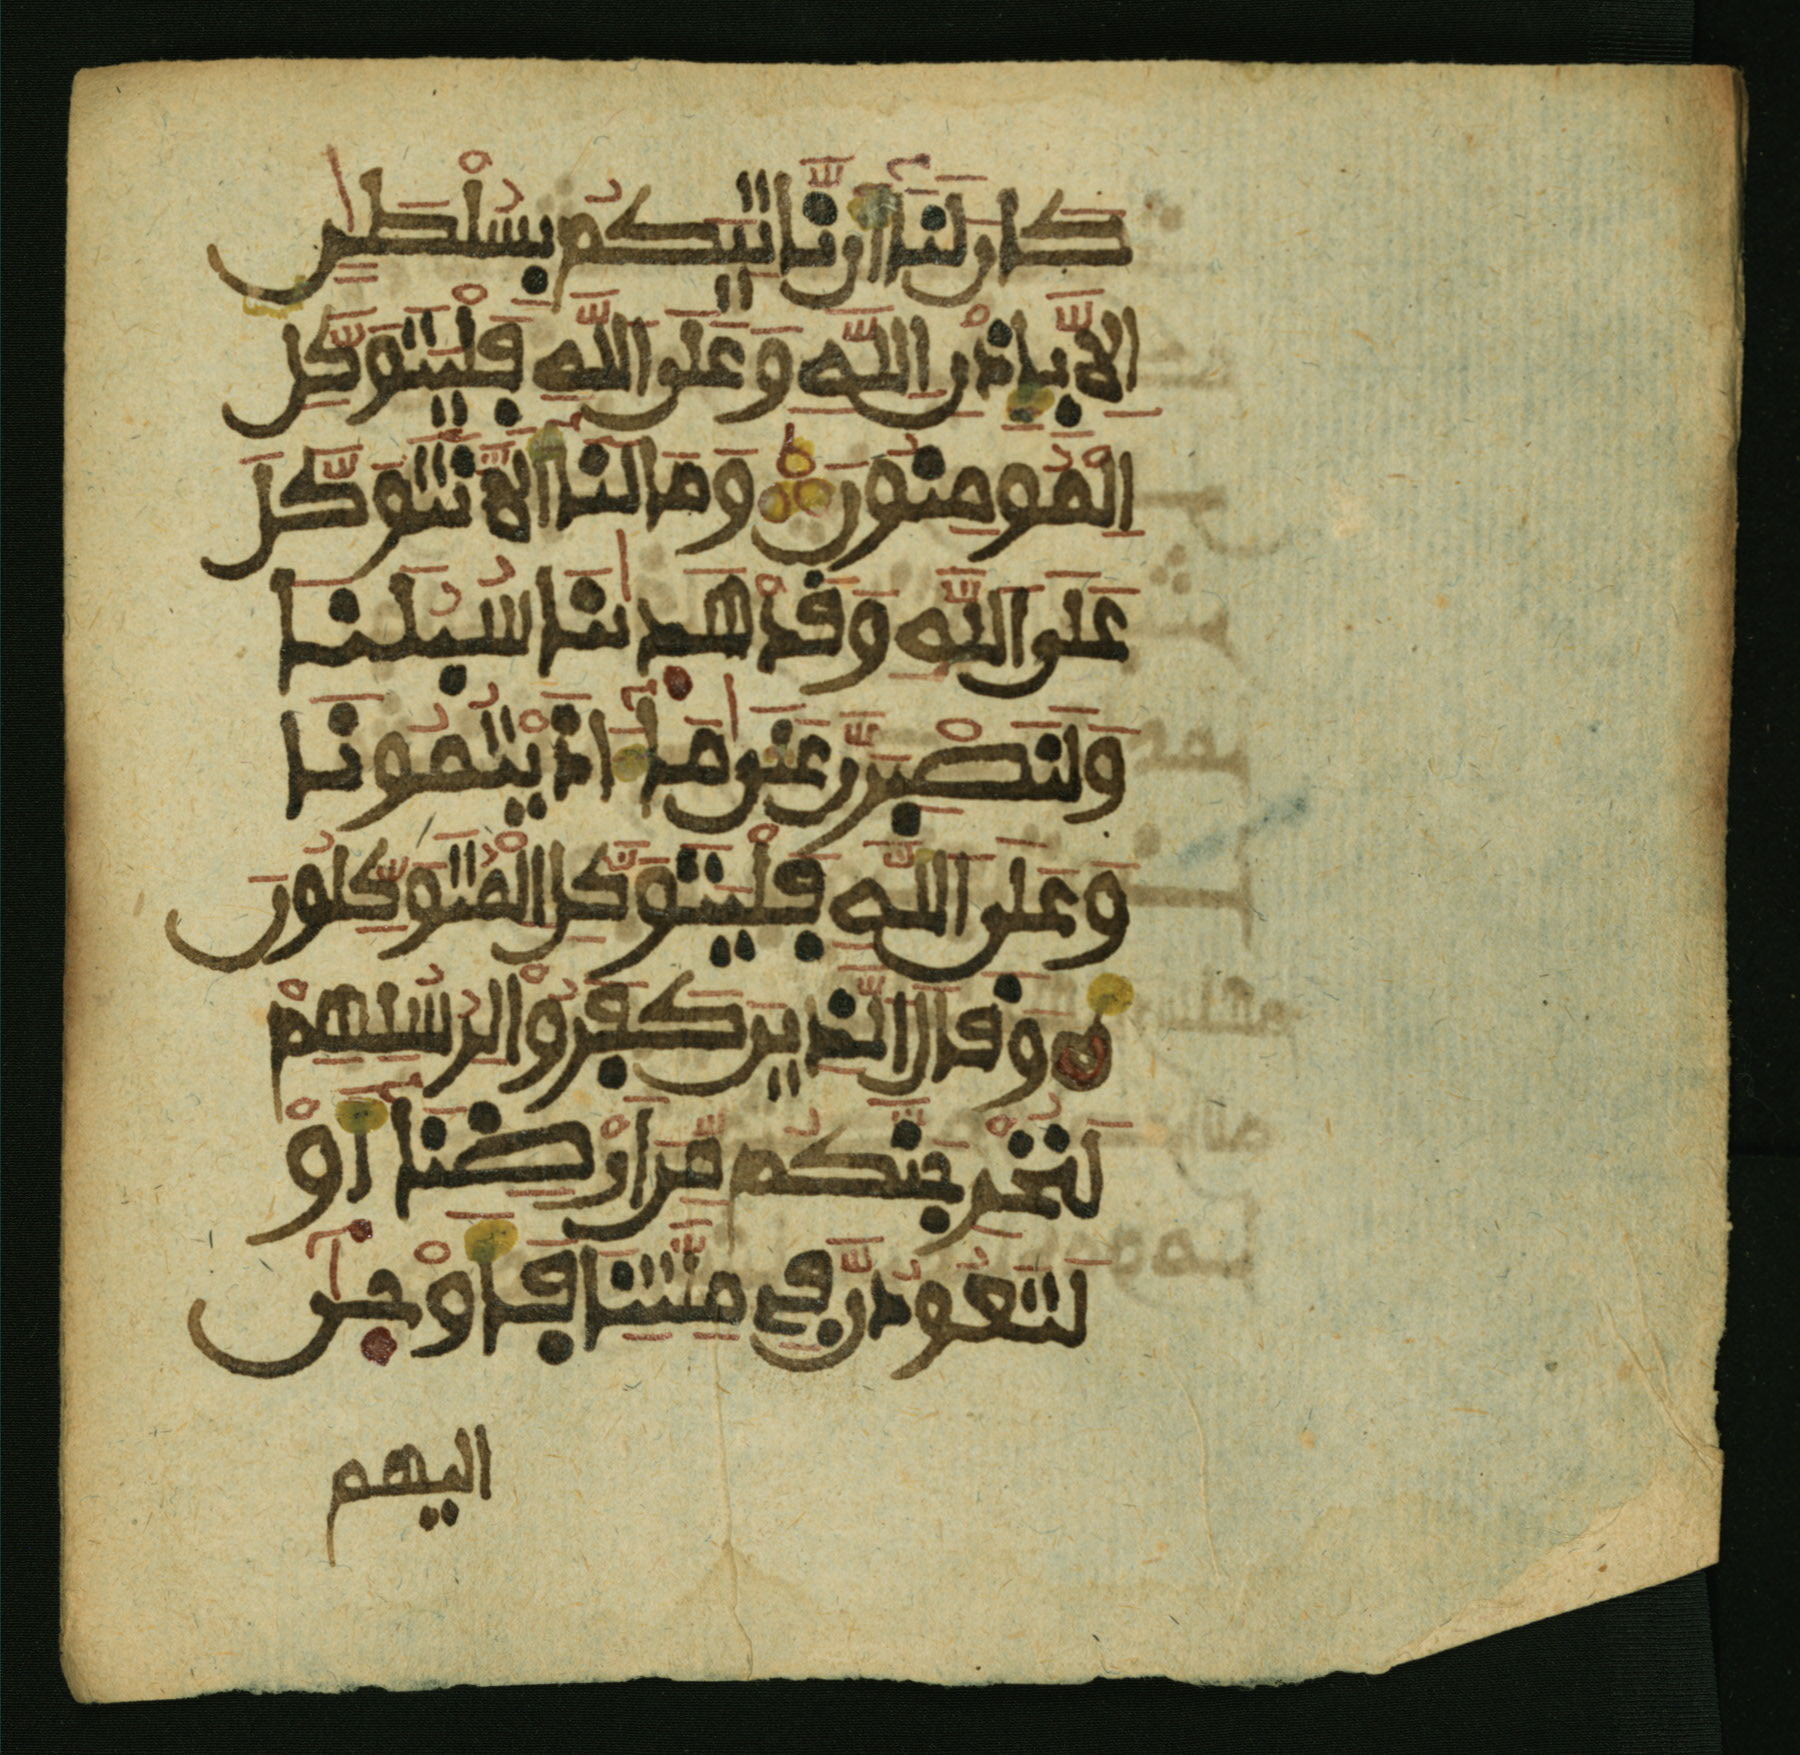 كَانَ لَنَآ أَن نَّاتِيَكُم بِسُلْطَٰنٍ
اِلَّا بِإِذْنِ اِ۬للَّهِ وَعَلَى اَ۬للَّهِ فَلْيَتَوَكَّلِ
اِ۬لْمُومِنُونَ وَمَا لَنَآ أَلَّا نَتَوَكَّلَ
عَلَى اَ۬للَّهِ وَقَدْ هَدَىٰنَا سُبُلَنَا
وَلَنَصْبِرَنَّ عَلَىٰ مَآ ءَاذَيْتُمُونَا
وَعَلَى اَ۬للَّهِ فَلْيَتَوَكَّلِ اِ۬لْمُتَوَكِّلُونَ
وَقَالَ اَ۬لَّذِينَ كَفَرُواْ لِرُسُلِهِمْ
لَنُخْرِجَنَّكُم مِّنَ اَرْضِنَآ أَوْ
لَتَعُودُنَّ فِي مِلَّتِنَا فَأَوْحَىٰٓ
إليهم